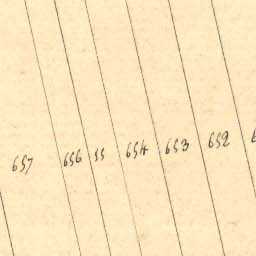 657 656 55 654 653 652